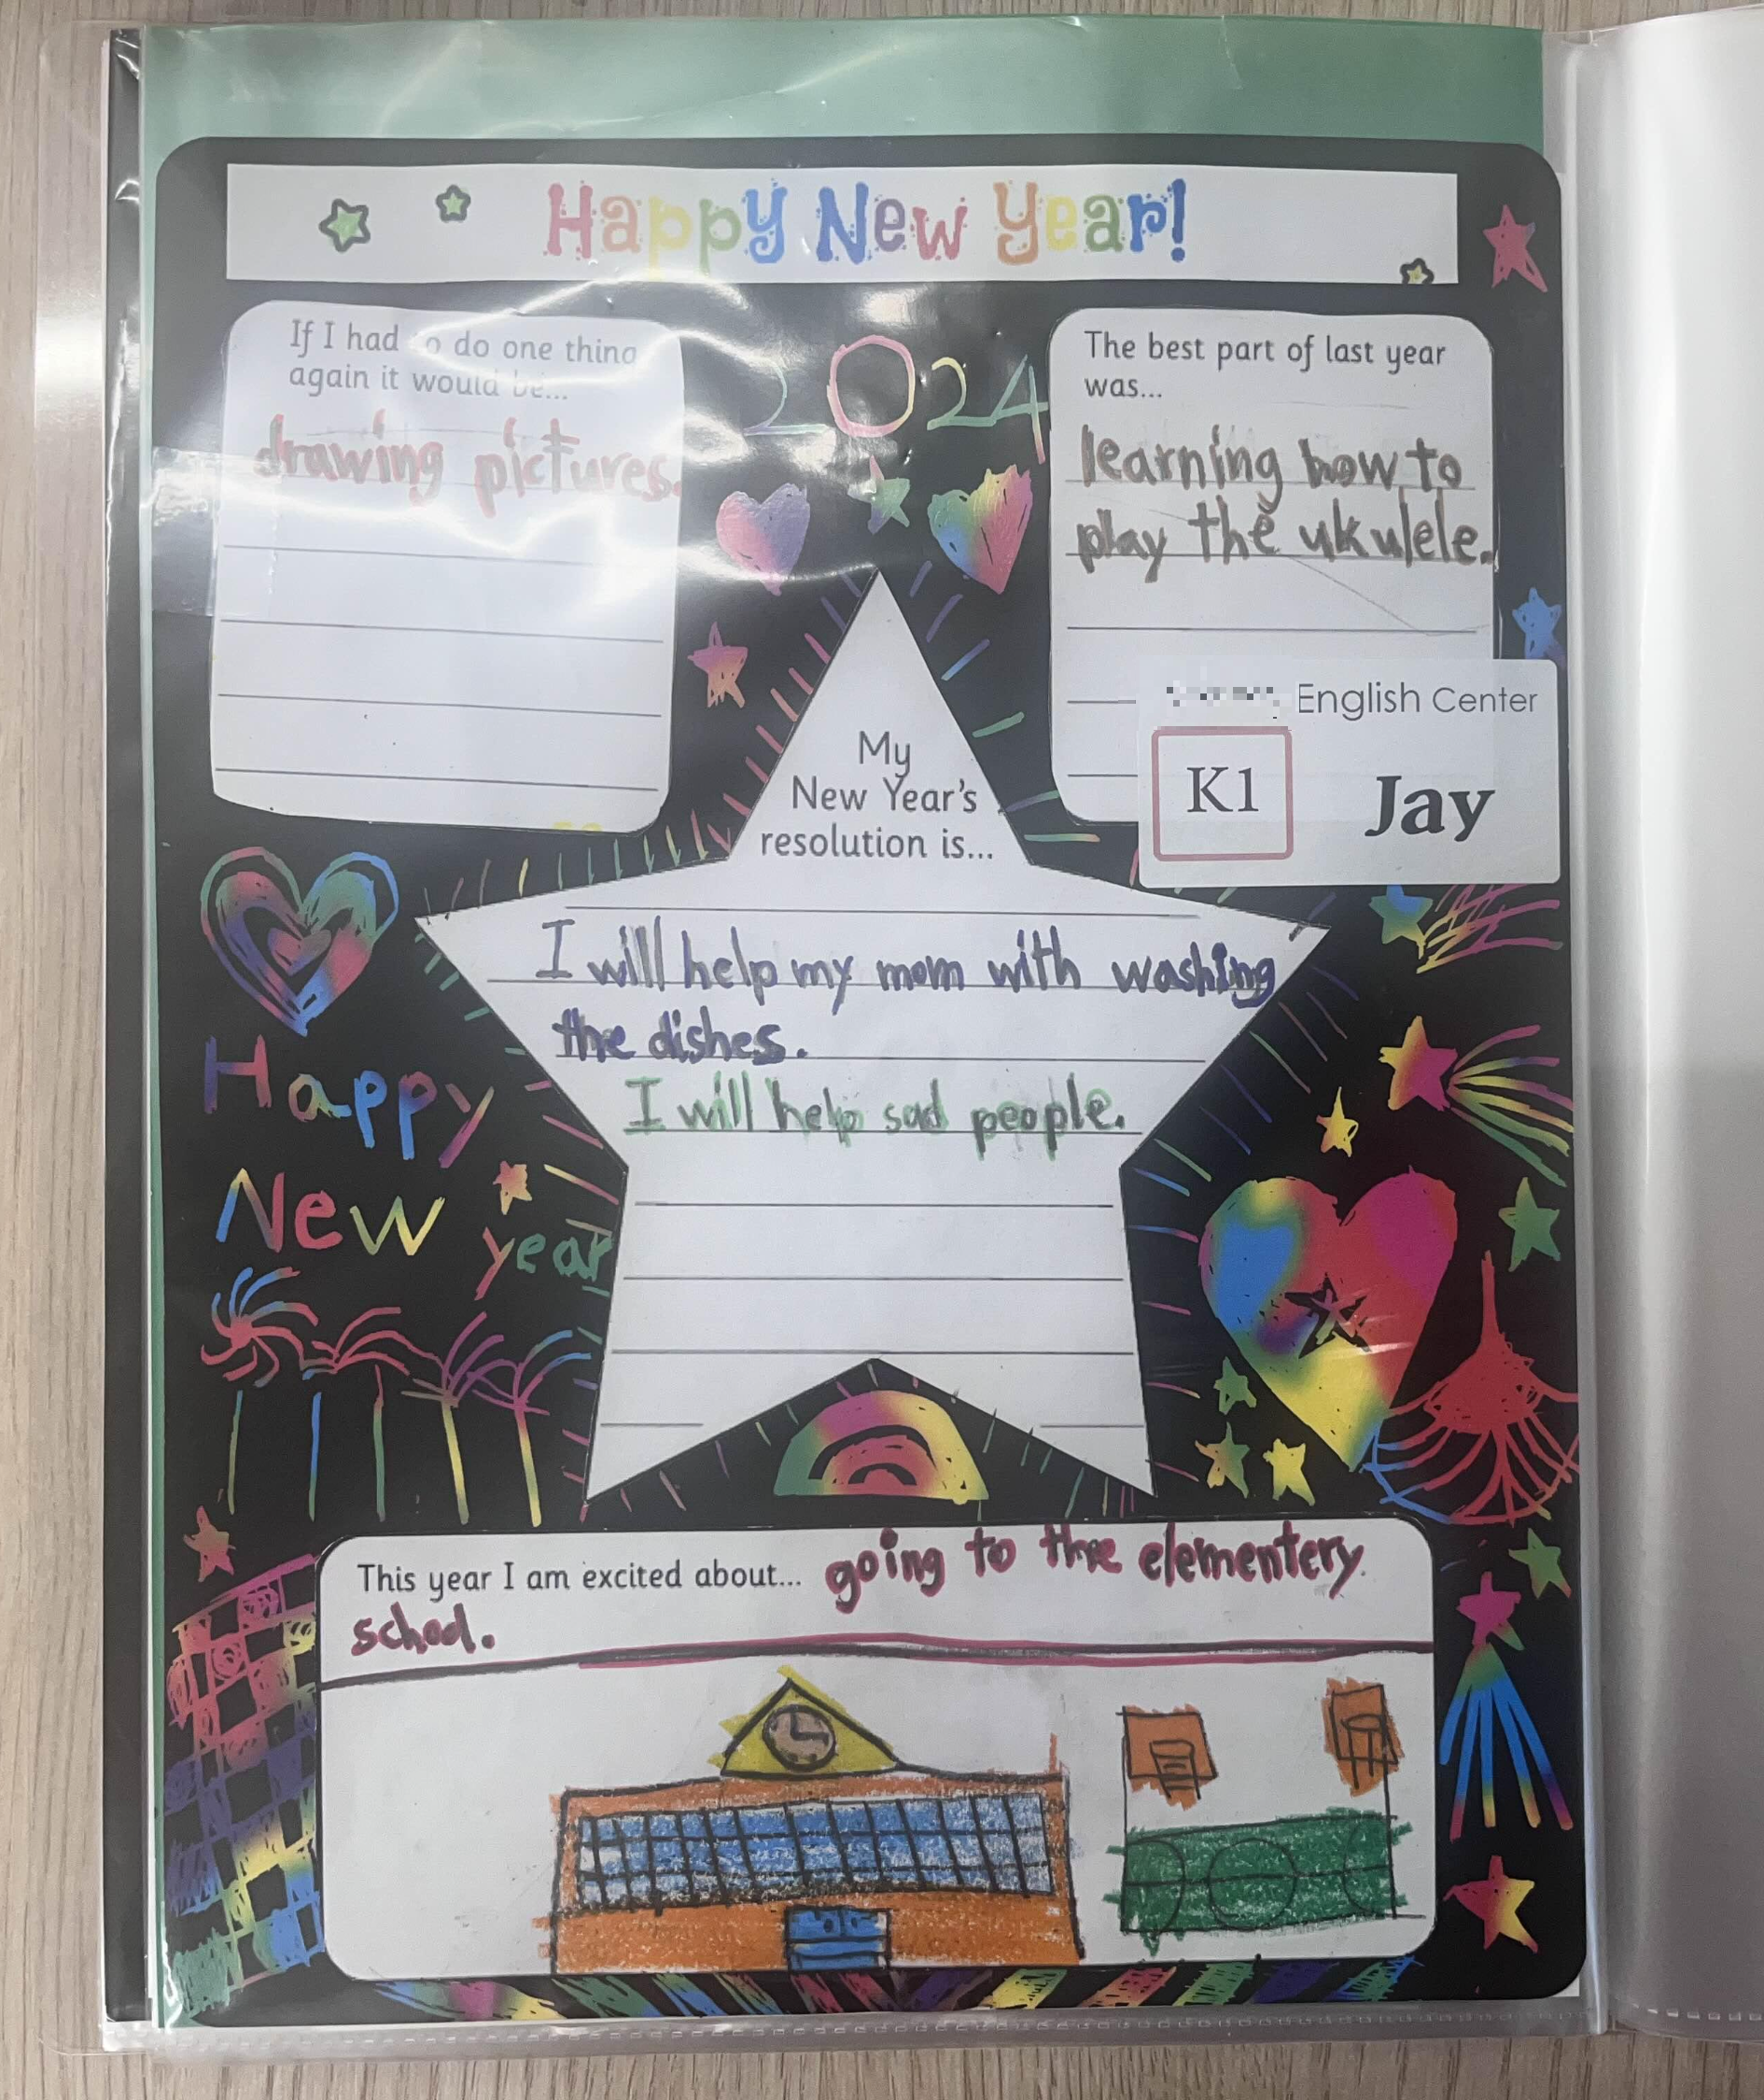 Happy New Year!
If I had to do one thing
again it would be...
drawing pictures.
2024
The best part of last year
was...
learning how to
play the ukulele.
English Center
K1
Jay
My
New Year's
resolution is...
I will help my mom with washing
the dishes.
I will help sad people.
Happy
New year
This year I am excited about... going to the elementery
school.